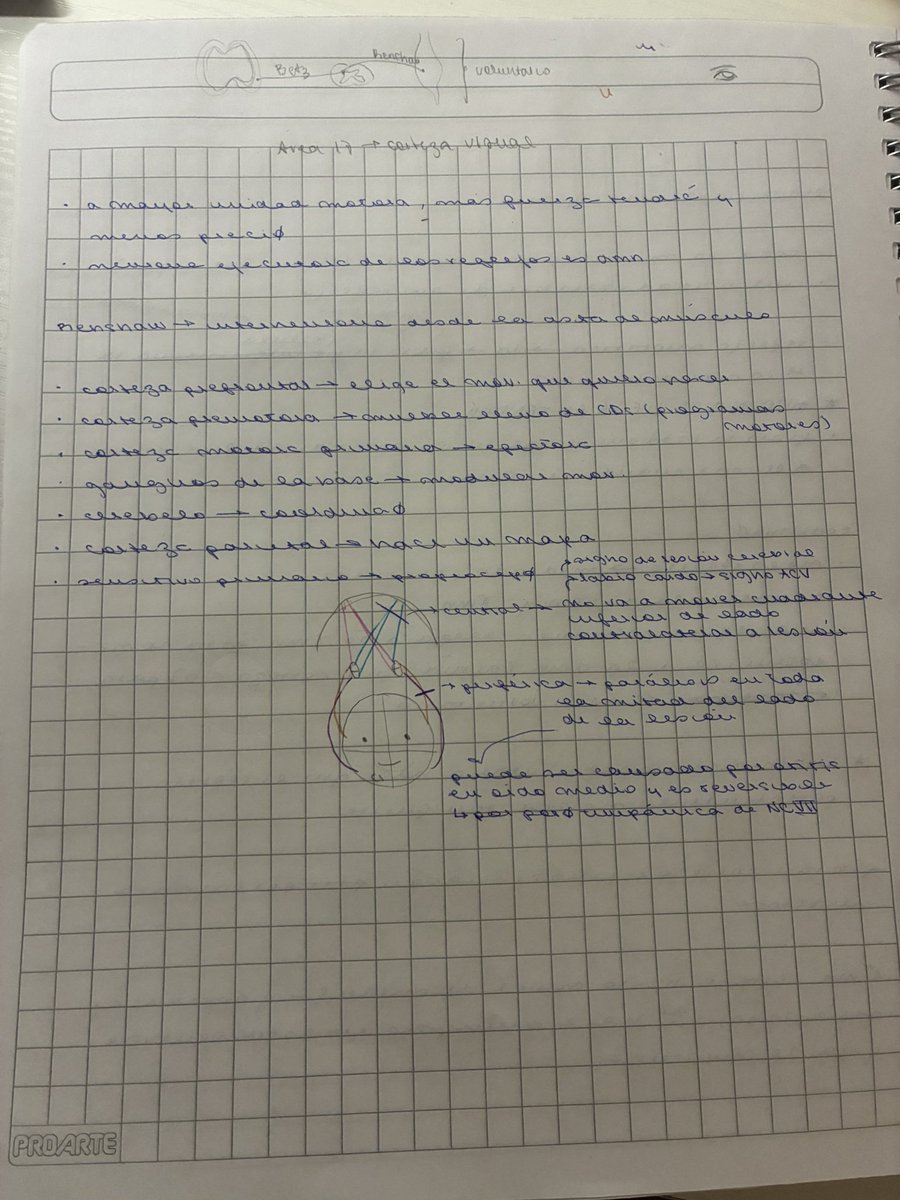 Betz Renshaw voluntario
Area 17 → corteza visual
· a mayor unidad motora, más fuerza tendré y
menos preciø
· neurona ejecutora de los reflejos es αmn
Renshaw → interneurona desde el asta de músculo
· corteza prefrontal → elige el mov. que quiero hacer
· corteza premotora → (programas
motores)
· corteza motora primaria → efectora
· ganglios de la base → modulan mov.
· cerebelo → coordinaø
· corteza parietal → hace un mapa
· sensitivo primario → propiocepø
signo de lesión
labio caído → signo ACV
→ central → no va a mover cuadrante
inferior de lado
contralateral a lesión
→ periférica → parálisis en toda
la mitad del lado
de la lesión
puede ser causado por otitis
en oído medio y es reversible
↳ por timpánica de NC VII
PROARTE